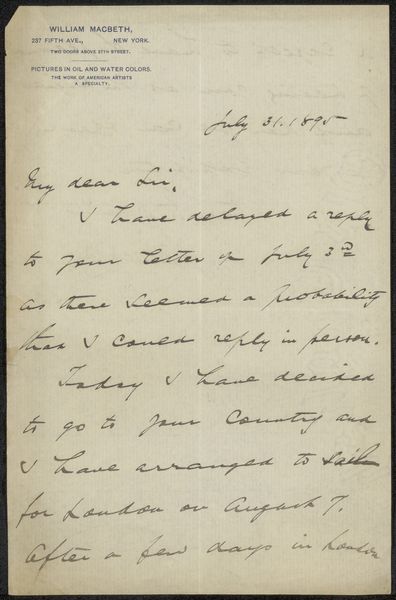 WILLIAM MACBETH,
237 FIFTH AVE., NEW YORK.
TWO DOORS ABOVE 27TH STREET.
PICTURES IN OIL AND WATER COLORS.
THE WORK OF AMERICAN ARTISTS
A SPECIALTY.
July 31. 1895
My dear Sir,
I have delayed a reply
to your letter of July 3rd
as there seemed a probability
that I could reply in person.
Today I have decided
to go to your Country and
I have arranged to sail
for London on August 7.
After a few days in London